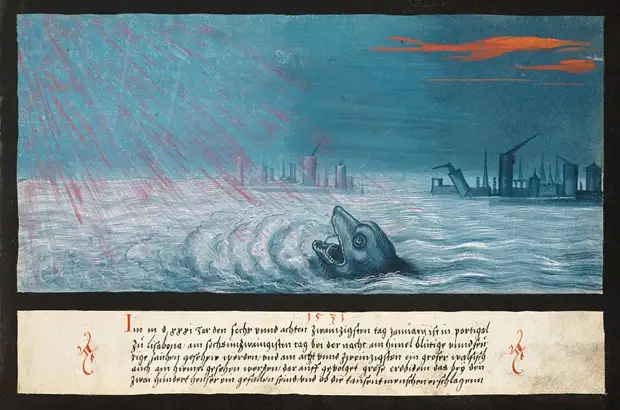 1531
Im m d xxxi Jar den sechs vnnd achten zwainzigsten tag Januarii ist in portigal
zu lisabona am sechsundzwaingisten tag bei der nacht am himel bluetige vnnd feu
rige zaichen gesehenn worden, vnd am acht vnnd zwenzigsten ein grosser walfisch
auch am himel gesehen worden, dar auff gevolget gross erdbidem das bey den
zwai hundert heusser ein gefallen seind, vnd ob die tausent menschen erschlagenn